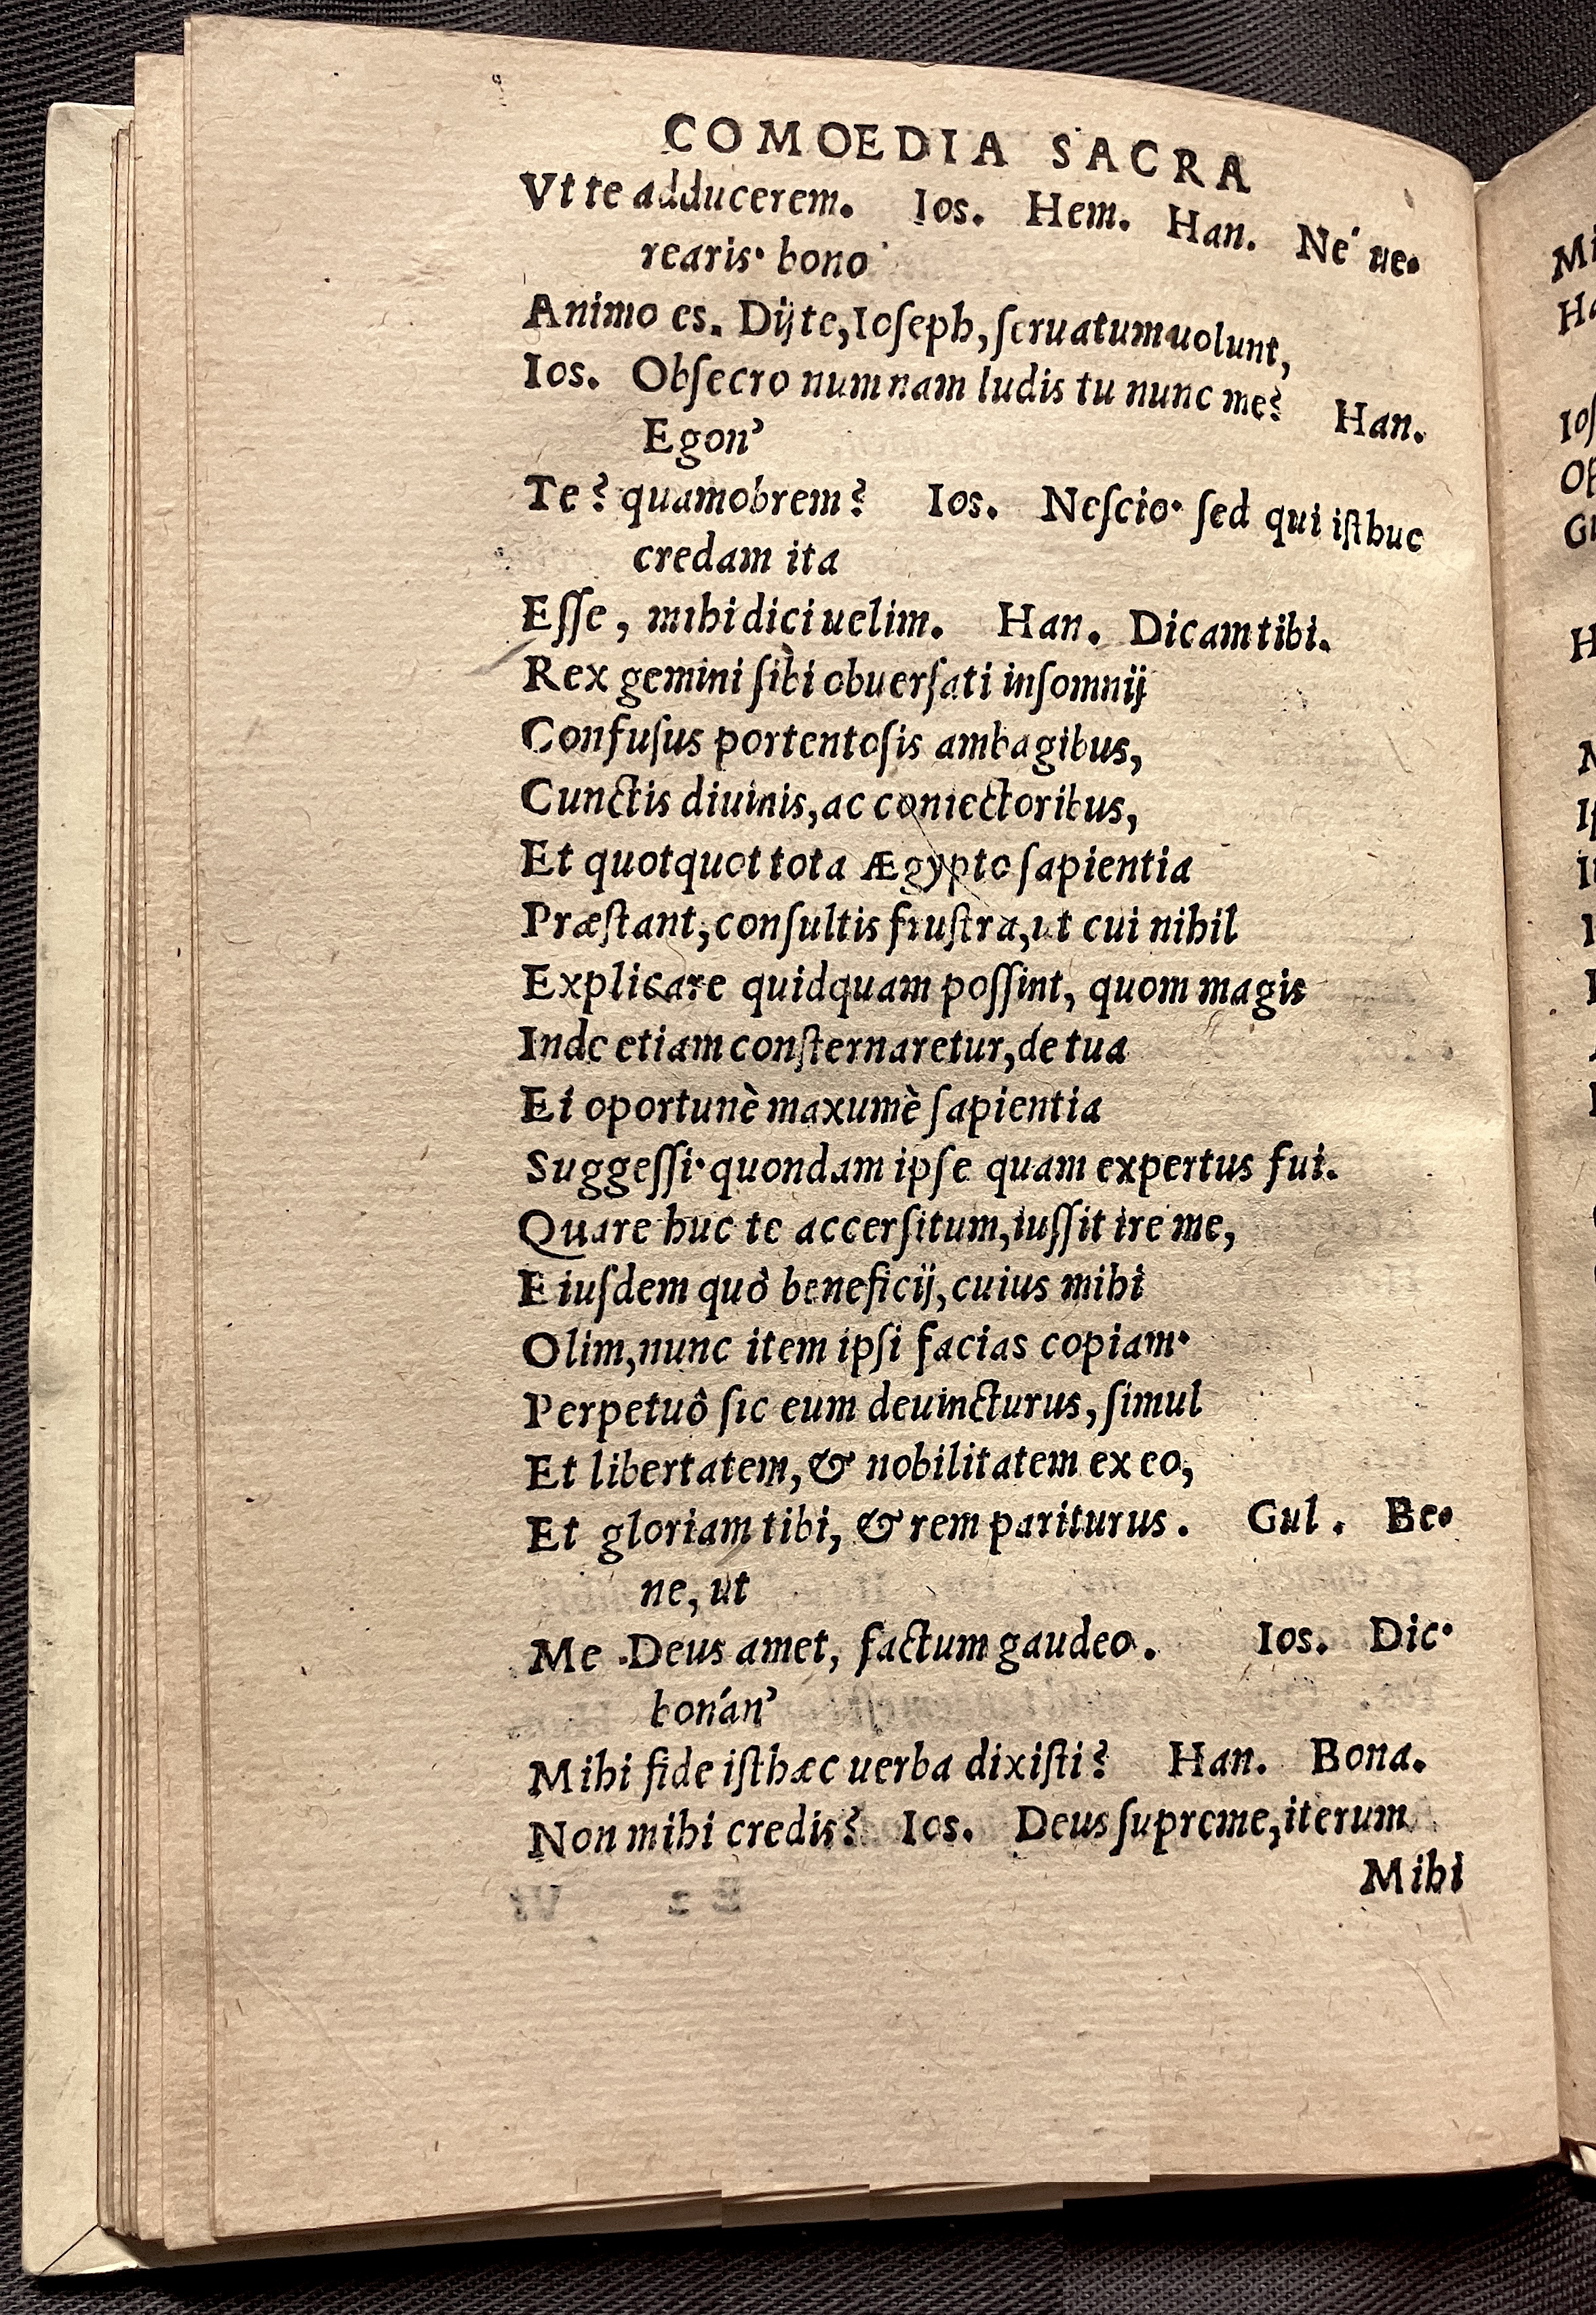 COMOEDIA SACRA
Vt te adducerem. Ios. Hem. Han. Ne' ue•
rearis• bono
Animo es. Dij te, Ioſeph, ſeruatum uolunt,
Ios. Obſecro numnam ludis tu nunc me? Han.
Egon’
Te? quamobrem? Ios. Neſcio• ſed qui iſthuc
credam ita
Eſſe, mihi dici uelim. Han. Dicam tibi.
Rex gemini ſibi obuerſati inſomnij
Confuſus portentoſis ambagibus,
Cunctis diuinis, ac coniectoribus,
Et quotquot tota Ægypto ſapientia
Præſtant, conſultis fruſtra, ut cui nihil
Explicare quidquam poſſint, quom magis
Inde etiam conſternaretur, de tua
Ei oportunè maxumè ſapientia
Suggeſſi• quondam ipſe quam expertus fui.
Quare huc te accerſitum, iuſſit ire me,
Eiuſdem quò beneficij, cuius mihi
Olim, nunc item ipſi facias copiam•
Perpetuô ſic eum deuincturus, ſimul
Et libertatem, & nobilitatem ex eo,
Et gloriam tibi, & rem pariturus. Gul. Be•
ne, ut
Me Deus amet, factum gaudeo. Ios. Dic•
bonán’
Mihi fide iſthæc uerba dixiſti? Han. Bona.
Non mihi credis? Ios. Deus ſupreme, iterum
Mihi
Mi
Ha
Ioſ
Ob
Gu
H